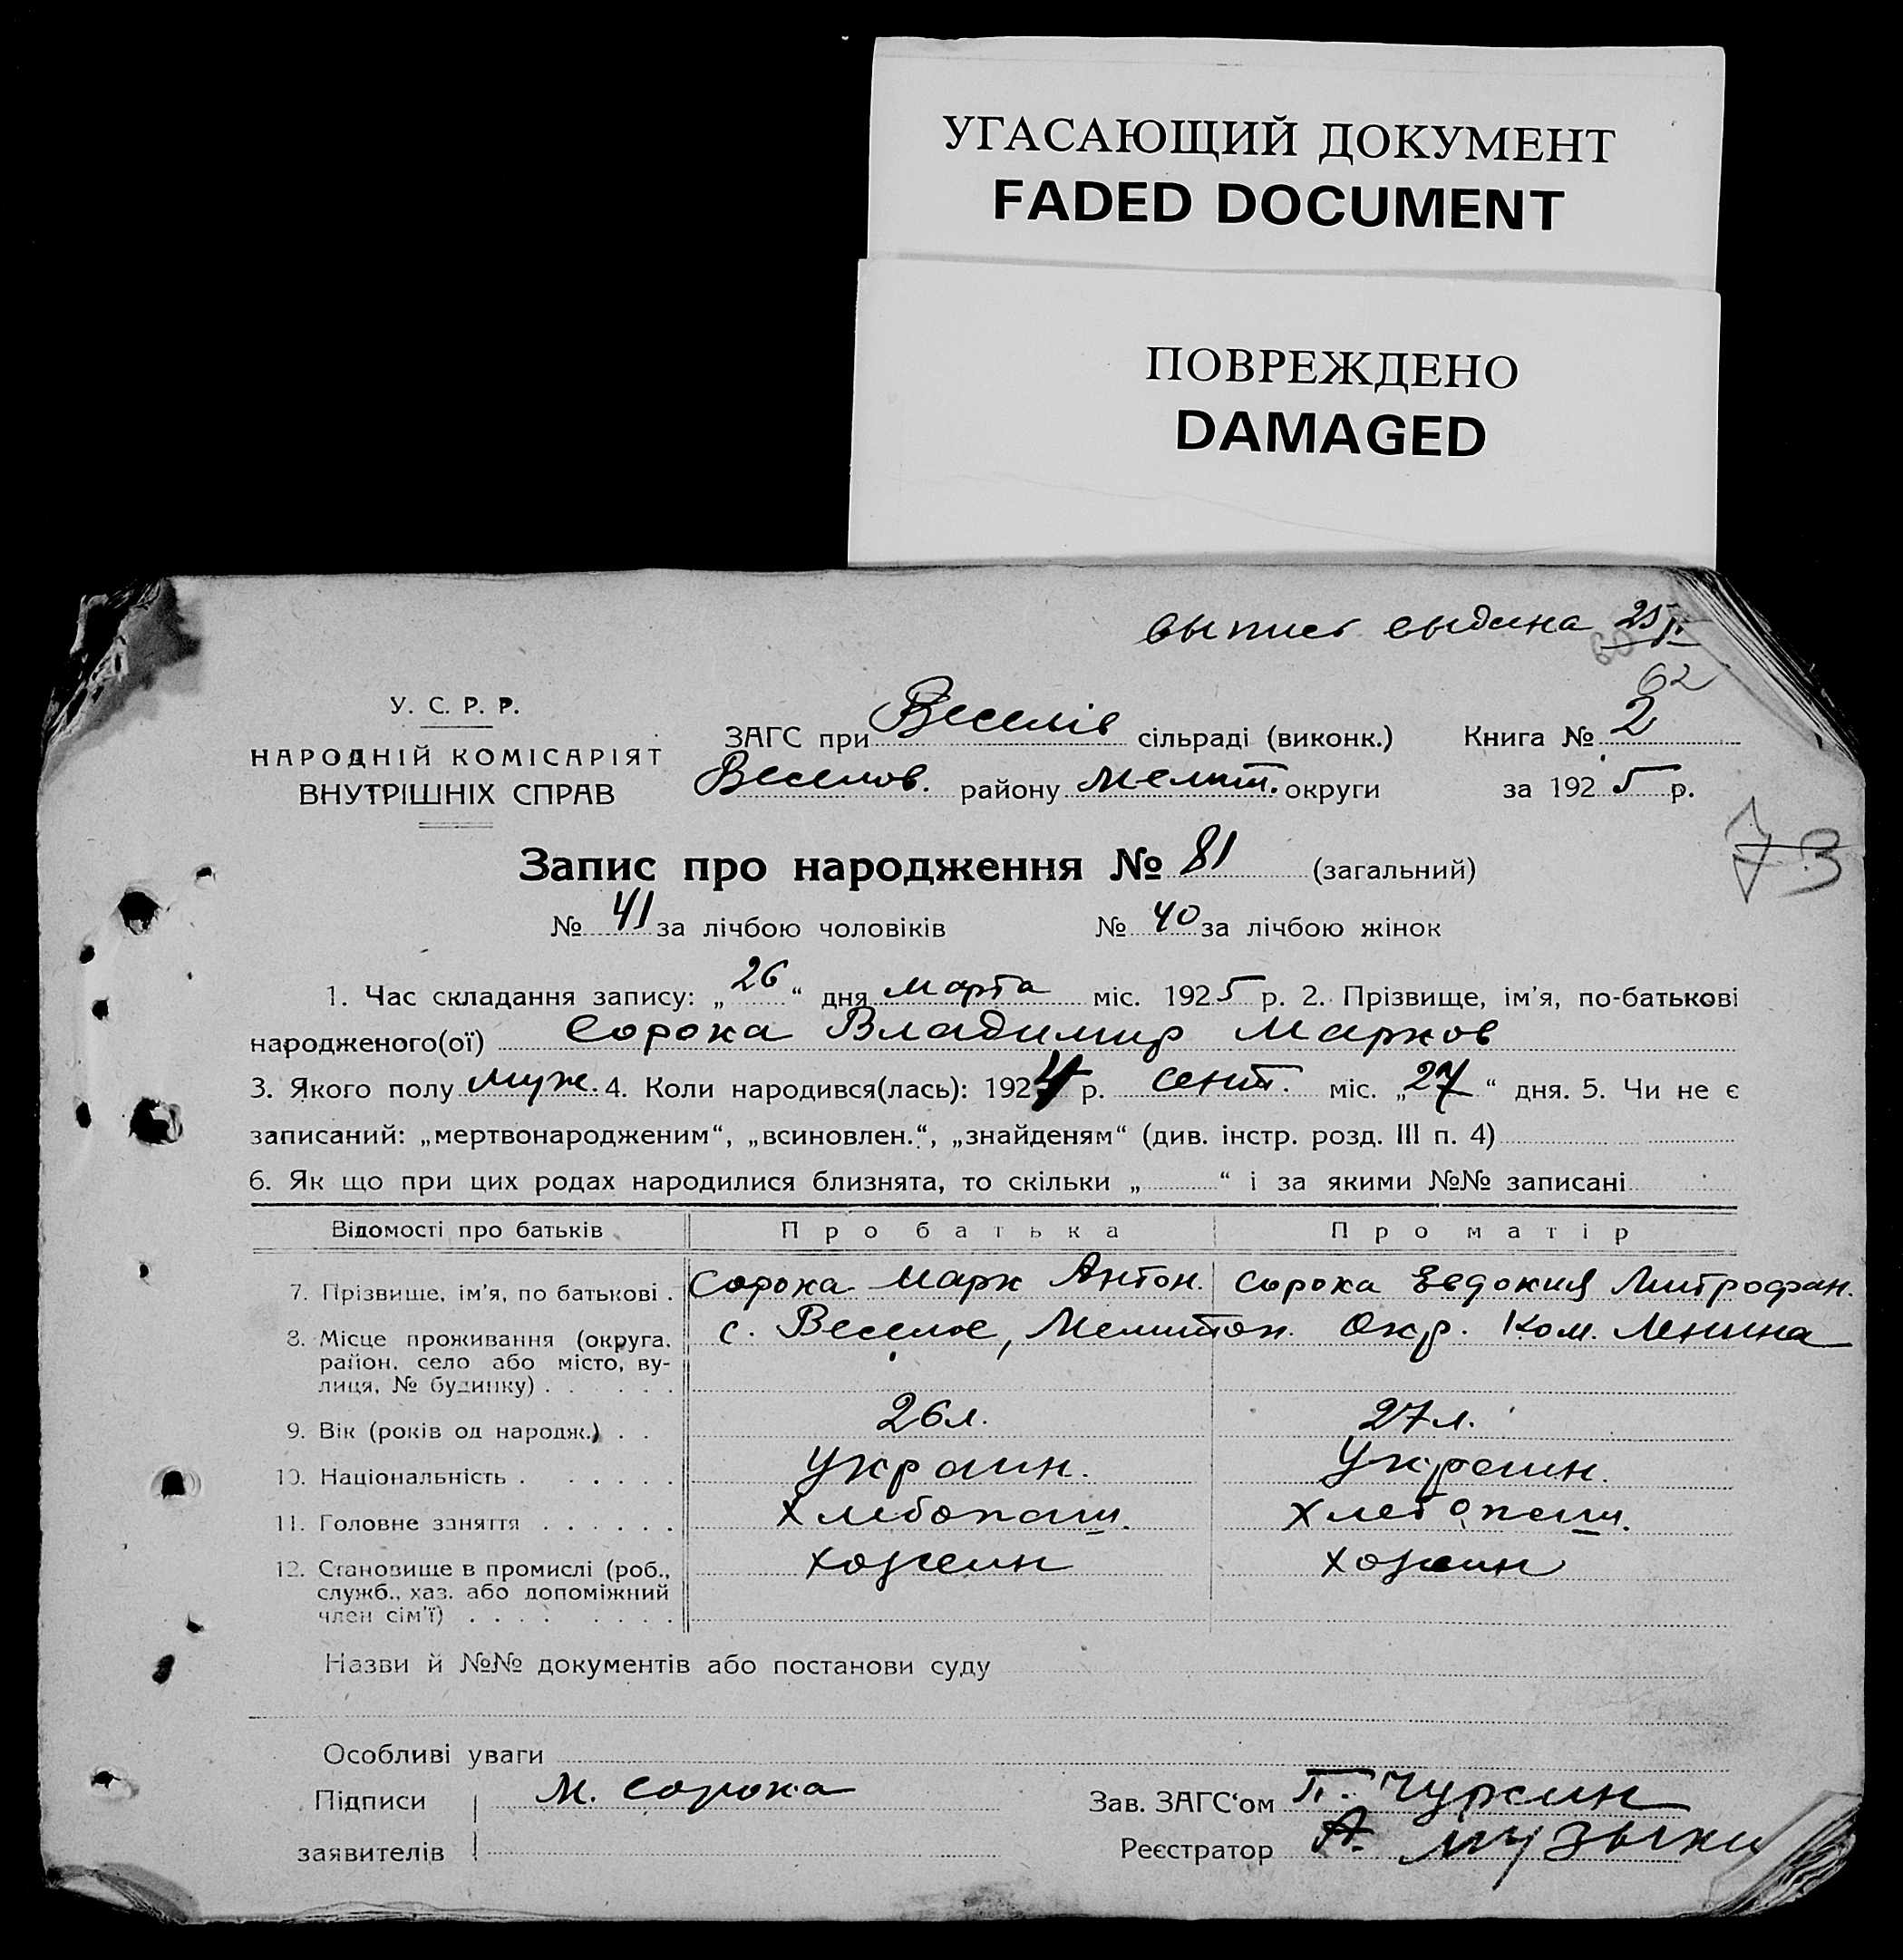 УГАСАЮЩИЙ ДОКУМЕНТ
FADED DOCUMENT
ПОВРЕЖДЕНО
DAMAGED
выпись выдана 25
60
62
У. С. Р. Р.
НАРОДНІЙ КОМІСАРІЯТ
ВНУТРІШНІХ СПРАВ
ЗАГС при Веселів сільраді (виконк.) Книга № 2
Веселов. району Мелит. округи за 1925 р.
73
Запис про народження № 81 (загальний)
№ 41 за лічбою чоловіків № 40 за лічбою жінок
1. Час складання запису: „26“ дня марта міс. 1925 р. 2. Прізвище, ім'я, по-батькові
народженого(ої) Сорока Владимир Марков
3. Якого полу муж. 4. Коли народився(лась): 1924 р. сент. міс. „27“ дня. 5. Чи не є
записаний: „мертвонародженим“, „всиновлен.“, „знайденям“ (див. інстр. розд. III п. 4)
6. Як що при цих родах народилися близнята, то скільки „ “ і за якими №№ записані
Відомості про батьків Про батька Про матір
7. Прізвище, ім'я, по батькові . Сорока Марк Антон. Сорока Евдокия Митрофан.
8. Місце проживання (округа, с. Веселое, Мелитоп. Окр. Ком. Ленина
район, село або місто, ву-
лиця, № будинку) . . . . .
9. Вік (років од народж.) . . 26 л. 27 л.
10. Національність . . . . . Украин. Украин.
11. Головне заняття . . . . . . Хлебопаш. Хлебопаш.
12. Становище в промислі (роб., хозяин хозяин
служб., хаз. або допоміжний
член сім'ї) . . . . . . . .
Назви й №№ документів або постанови суду
Особливі уваги
Підписи М. Сорока Зав. ЗАГС'ом П. Чуркин
заявителів Реєстратор А. Музыки